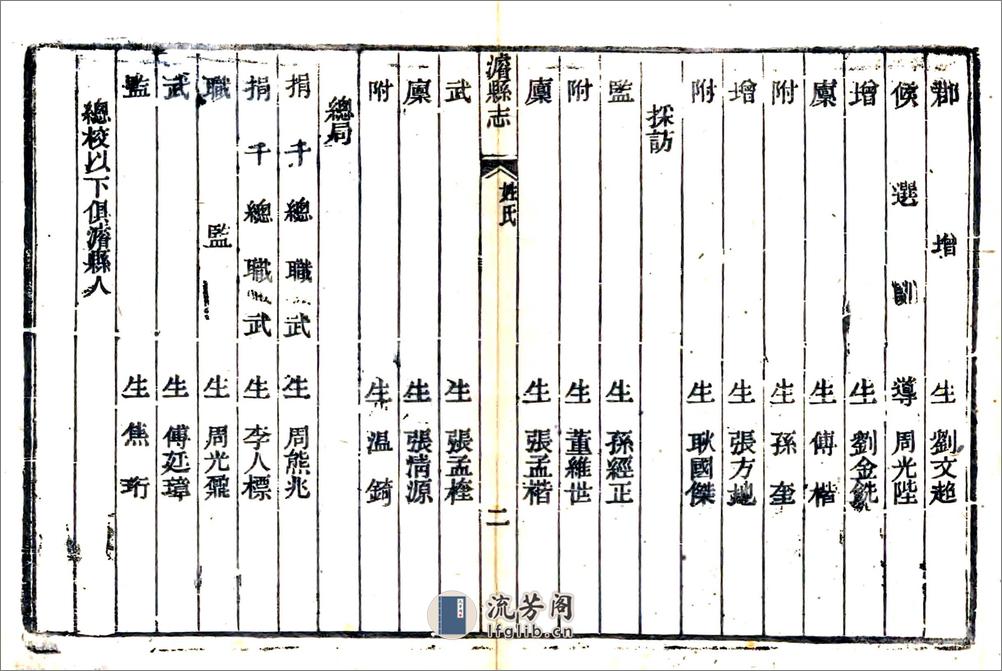 郡增生劉文超
候選訓導周光陛
增生劉金
廩生傅楷
附生孫奎
增生張方
附生耿國傑
採訪
監生孫經正
附生董維世
廩生張孟楷
濬縣志
姓氏
二
武生張孟
廩生張清源
附生温錡
總局
捐千總職武生周熊兆
捐千總職武生李人標
職監生周光
武生傅延璋
監生焦珩
總校以下俱濬縣人
流芳阁
lfglib.cn